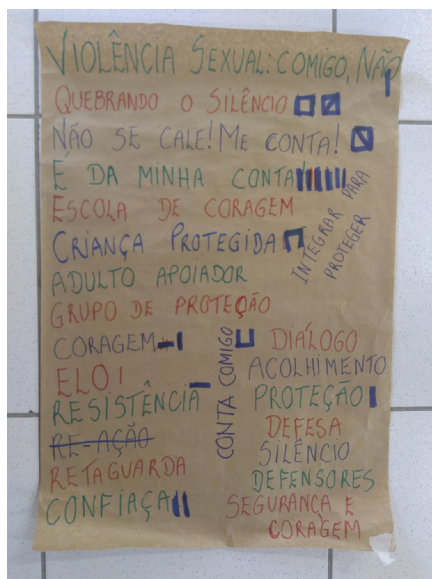 VIOLÊNCIA SEXUAL: COMIGO, NÃO
QUEBRANDO O SILÊNCIO
NÃO SE CALE! ME CONTA!
É DA MINHA CONTA
ESCOLA DE CORAGEM
CRIANÇA PROTEGIDA
INTEGRAR PARA
PROTEGER
ADULTO APOIADOR
GRUPO DE PROTEÇÃO
CORAGEM
ELO
RESISTÊNCIA
RE-AÇÃO
RETAGUARDA
CONFIAÇA
CONTA COMIGO
DIÁLOGO
ACOLHIMENTO
PROTEÇÃO
DEFESA
SILÊNCIO
DEFENSORES
SEGURANCA E
CORAGEM